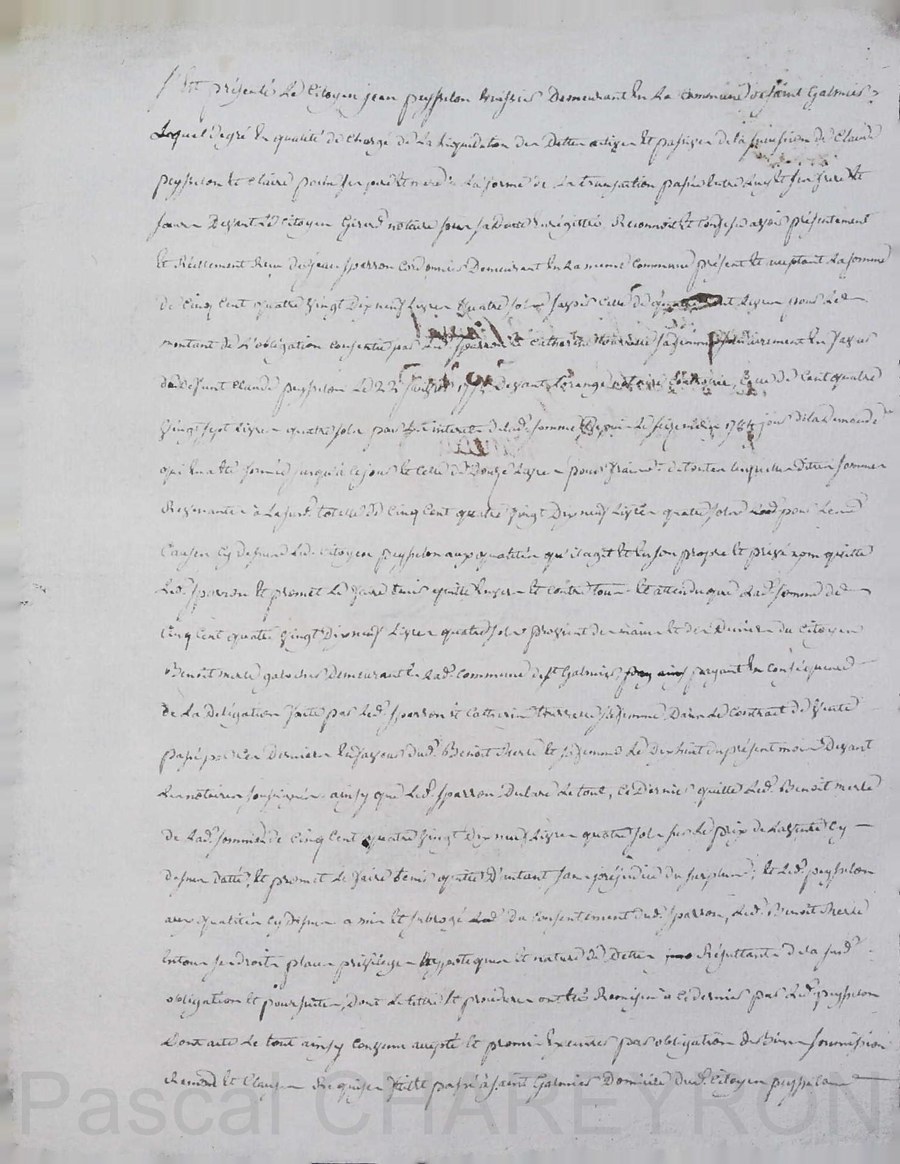 Est présenté Le Citoyen jean peysselon huissier Demeurant En La commune de saint Galmier
Lequel degré En qualité de Chargé de La liquidation des Dettes actives Et passives de la succession de Claude
peysselon Et Claire ses pere Et mere a La forme de La transaction passée Entre Luy Et ses frere Et
soeur Devant Le Citoyen Girard notaire Reconnoit Et Confesse avoir présentement
Et Réellement Reçu de jean sparron Cordonnier Demeurant En La meme Commune présent Et acceptant La somme
de Cinq Cent quatre Vingt Dix neuf Livres quatre sols savoir Celle de quatre Cent Livres pour Le
montant de L'obligation Consentie par Led. sparron Et Catherine sa femme solidairement En faveur
de deffunt Claude peysselon Le 22 Devant notaire Celle de Cent quatre
Vingt sept Livres quatre sols pour Les interets de lad. somme Depuis Le jour de la demande
qui En a été formée jusqu'à Ce jour Et Celle de Douze Livres pour frais de toutes lesquelles dites sommes
Revenantes à La susd. totalle de Cinq Cent quatre Vingt Dix neuf Livres quatre sols pour Les
Causes Cy dessus Led. Citoyen peysselon aux qualités qu'il agit Et En son propre Et privé nom quitte
Led. sparron Et promet Le faire tenir quitte Envers Et Contre tous Et attendu que Lad. somme de
Cinq Cent quatre Vingt Dix neuf Livres quatre sols provient des mains Et des Deniers du Citoyen
Benoit merle galocher Demeurant En Lad. Commune de st Galmier payant En Conséquence
de La Délégation faite par Led. sparron Et Catherine sa femme Dans Le Contrat de Vente
passé par Ces Derniers En faveur dud. Benoit Merle Et sa femme Le Dix huit du présent mois Devant
Les notaires soussignés ainsy que Led. sparron Déclare Le tout, Ce Dernier quitte Led. Benoit merle
de Lad. somme de Cinq Cent quatre Vingt Dix neuf Livres quatre sols sur Le prix de La Vente Cy
dessus datté, Et promet Le faire tenir quitte D'autant sans préjudice du surplus, Et Led. peysselon
aux qualités Cy Dessus a mis Et subrogé du Consentement dud. sparron, Led. Benoit Merle
En tous ses droits place privilege hypoteques Et nature de Dettes Résultants de la susd.
obligation Et poursuites, Dont Le titre Et procedures ont été Remises à Ce dernier par Led. peysselon
Dont acte Le tout ainsy Convenu accepté Et promis Executer par obligation de Biens soumission
Renonc. Et Clauses Requises fait Et passé à saint Galmier Domicile dud. Citoyen peysselon
Pascal CHAREYRON